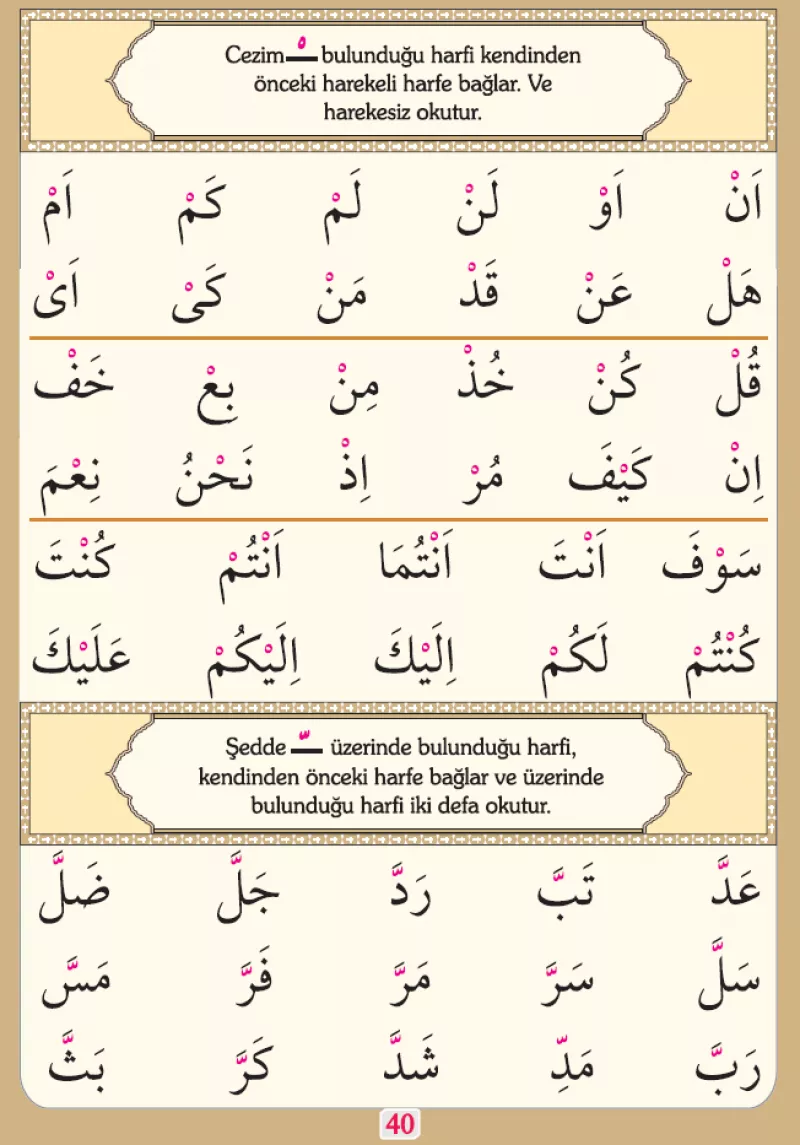 Cezim ـْ bulunduğu harfi kendinden
önceki harekeli harfe bağlar. Ve
harekesiz okutur.
اَنْ اَوْ لَنْ لَمْ كَمْ اَمْ
هَلْ عَنْ قَدْ مَنْ كَىْ اَىْ
قُلْ كُنْ خُذْ مِنْ بِعْ خَفْ
اِنْ كَيْفَ مُرْ اِذْ نَحْنُ نِعْمَ
سَوْفَ اَنْتَ اَنْتُمَا اَنْتُمْ كُنْتَ
كُنْتُمْ لَكُمْ اِلَيْكَ اِلَيْكُمْ عَلَيْكَ
Şedde ـّ üzerinde bulunduğu harfi,
kendinden önceki harfe bağlar ve üzerinde
bulunduğu harfi iki defa okutur.
عَدَّ تَبَّ رَدَّ جَلَّ ضَلَّ
سَلَّ سَرَّ مَرَّ فَرَّ مَسَّ
رَبَّ مَدِّ شَدَّ كَرَّ بَثَّ
40